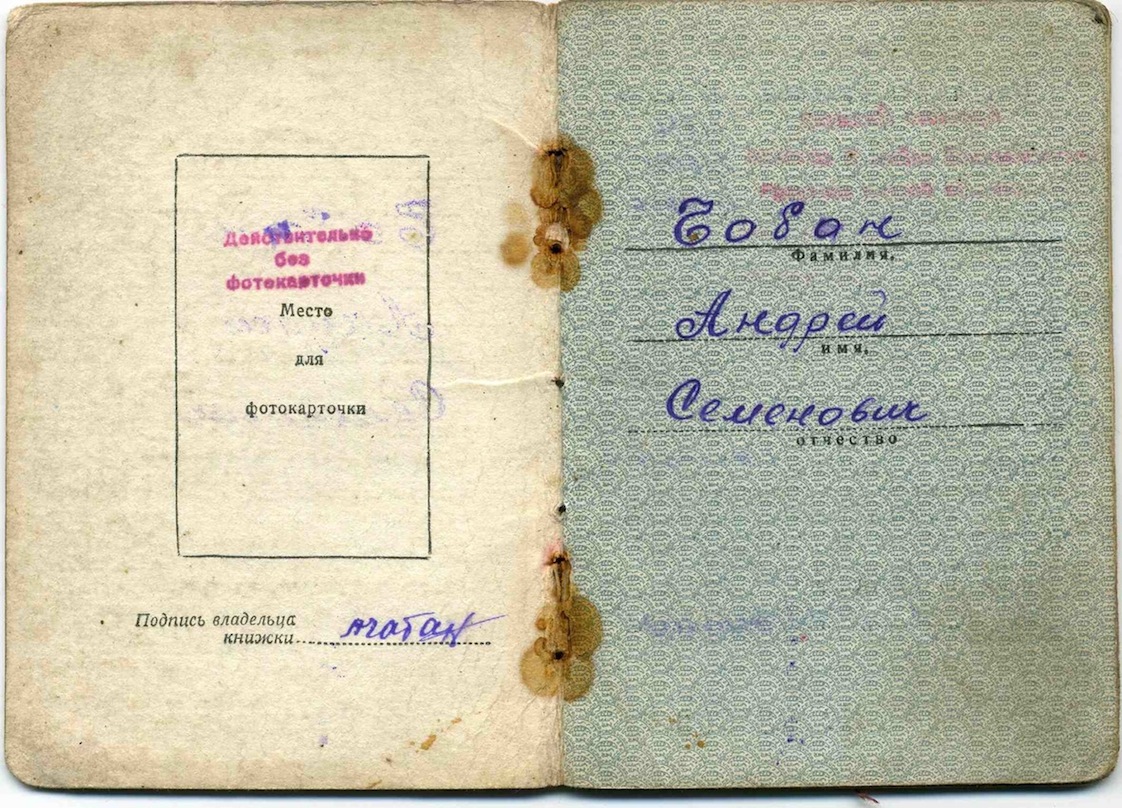 Действительно
без
фотокарточки
Место
для
фотокарточки
Подпись владельца
книжки
АЧобан
Чобан
Фамилия,
Андрей
имя,
Семенович
отчество